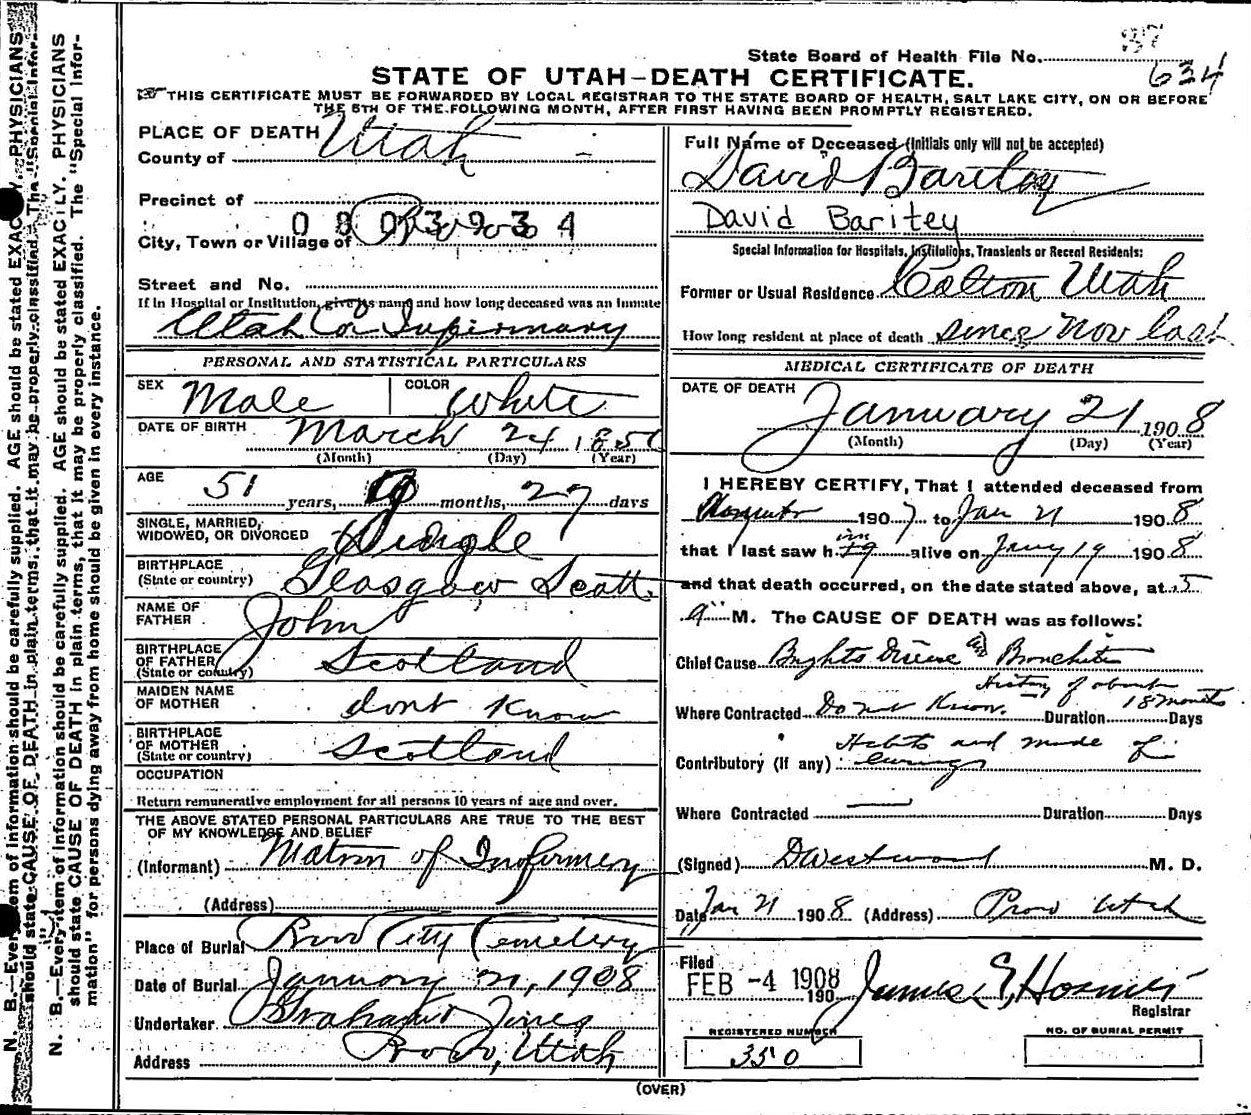 State Board of Health File No.
634
STATE OF UTAH—DEATH CERTIFICATE.
THIS CERTIFICATE MUST BE FORWARDED BY LOCAL REGISTRAR TO THE STATE BOARD OF HEALTH, SALT LAKE CITY, ON OR BEFORE
THE 5TH OF THE FOLLOWING MONTH, AFTER FIRST HAVING BEEN PROMPTLY REGISTERED.
PLACE OF DEATH
County of Utah
Precinct of
City, Town or Village of Provo
Street and No.
If in Hospital or Institution, give its name and how long deceased was an inmate
Utah Co Infirmary
PERSONAL AND STATISTICAL PARTICULARS
SEX Male COLOR White
DATE OF BIRTH March 24 1856
(Month) (Day) (Year)
AGE 51 years, 9 months, 27 days
SINGLE, MARRIED, WIDOWED, OR DIVORCED Single
BIRTHPLACE (State or country) Glasgow Scott.
NAME OF FATHER John
BIRTHPLACE OF FATHER (State or country) Scotland
MAIDEN NAME OF MOTHER dont Know
BIRTHPLACE OF MOTHER (State or country) Scotland
OCCUPATION
Return remunerative employment for all persons 10 years of age and over.
THE ABOVE STATED PERSONAL PARTICULARS ARE TRUE TO THE BEST
OF MY KNOWLEDGE AND BELIEF
(Informant) Matron of Infirmery
(Address)
Place of Burial Provo City Cemetery
Date of Burial January 21, 1908
Undertaker Graham & Jones
Address Provo, Utah
Full Name of Deceased (Initials only will not be accepted)
David Baritey
David Baritey
Special Information for Hospitals, Institutions, Transients or Recent Residents:
Former or Usual Residence Colton Utah
How long resident at place of death since Nov last
MEDICAL CERTIFICATE OF DEATH
DATE OF DEATH
January 21 1908
(Month) (Day) (Year)
I HEREBY CERTIFY, That I attended deceased from
1907 to Jan 21 1908
that I last saw him alive on Jany 19 1908
and that death occurred, on the date stated above, at 5
a M. The CAUSE OF DEATH was as follows:
Chief Cause Brights Disease and Bronchitis
History of about
Where Contracted Do not Know. Duration 18 months Days
Habits and mode of
Contributory (if any)
Where Contracted Duration Days
(Signed) D Westwood M. D.
Date Jan 21 1908 (Address) Provo Utah
Filed
FEB -4 1908 James E, Hosmer
190 Registrar
REGISTERED NUMBER
350
NO. OF BURIAL PERMIT
(OVER)
N. B.—Every item of information should be carefully supplied. AGE should be stated EXACTLY. PHYSICIANS
should state CAUSE OF DEATH in plain terms, that it may be properly classified. The "Special Infor-
mation" for persons dying away from home should be given in every instance.